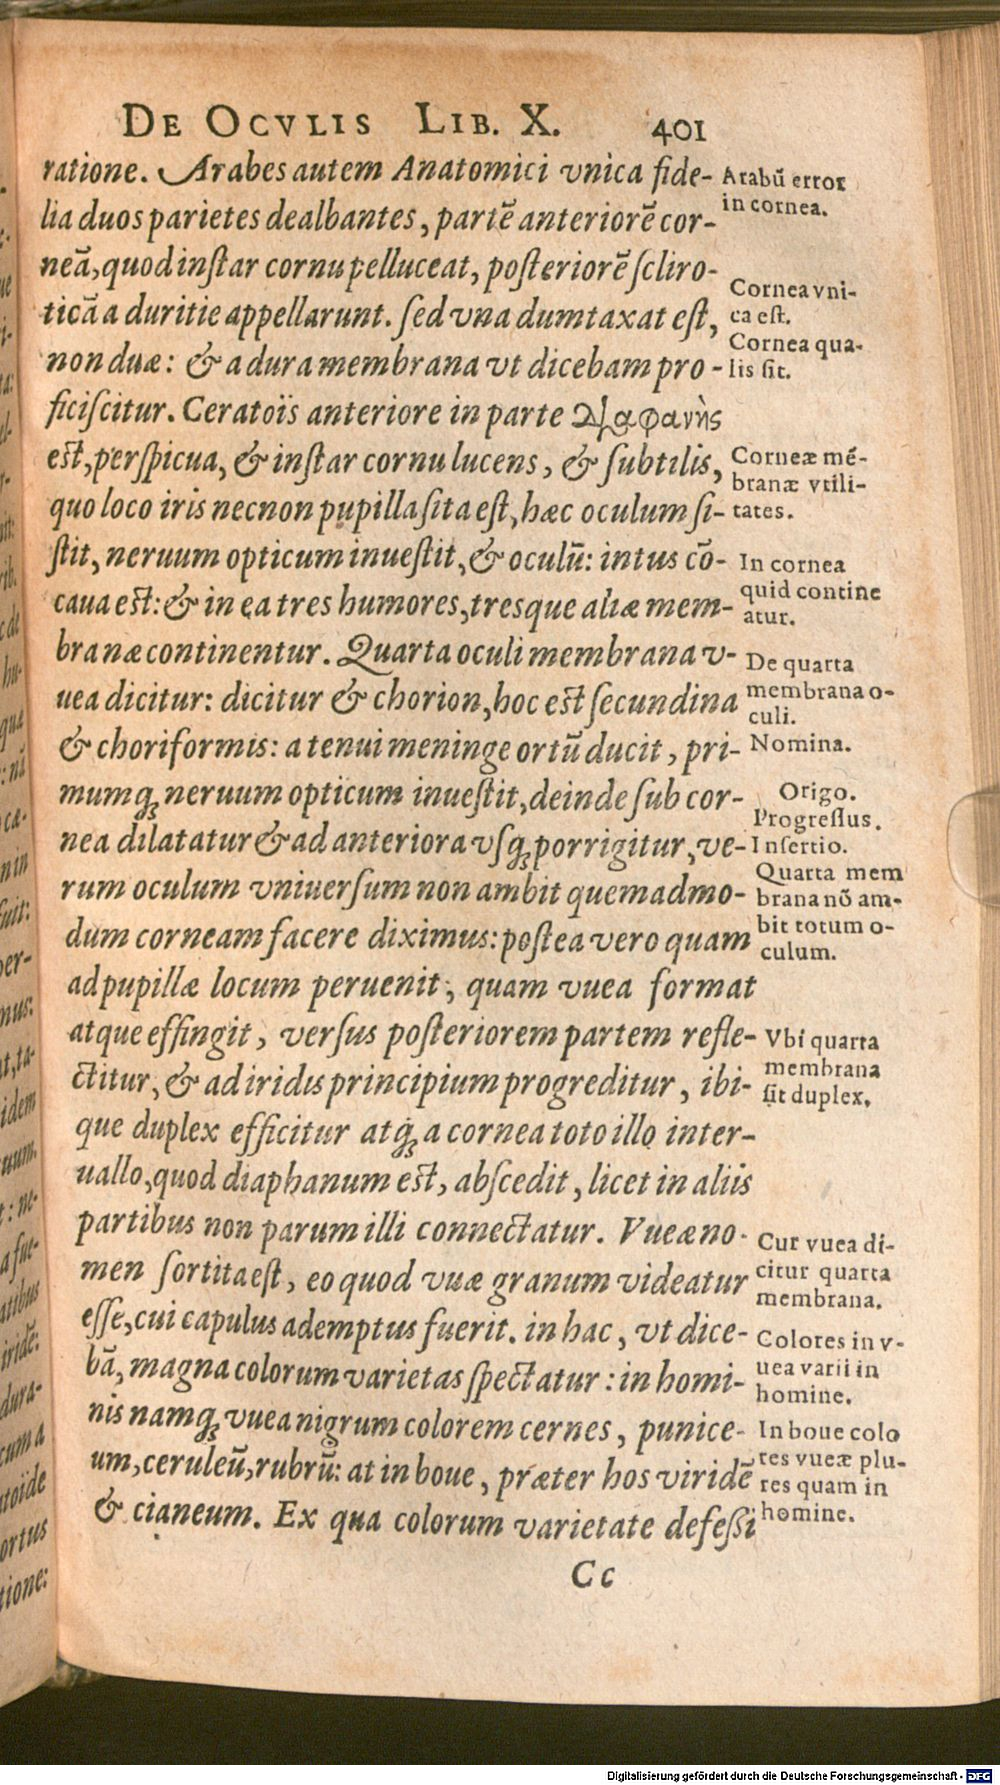 DE OCVLIS LIB. X. 401
ratione. Arabes autem Anatomici vnica fide-
lia duos parietes dealbantes, partē anteriorē cor-
neā, quod inſtar cornu pelluceat, poſteriorē ſcliro-
ticā a duritie appellarunt. ſed vna dumtaxat eſt,
non duæ: & a dura membrana vt dicebam pro-
ficiſcitur. Ceratois anteriore in parte διαφανὴς
eſt, perſpicua, & inſtar cornu lucens, & ſubtilis,
quo loco iris necnon pupilla ſita eſt, hæc oculum ſi-
ſtit, neruum opticum inueſtit, & oculū: intus cō-
caua eſt: & in ea tres humores, tresque aliæ mem-
branæ continentur. Quarta oculi membrana v-
uea dicitur: dicitur & chorion, hoc eſt ſecundina
& choriformis: a tenui meninge ortū ducit, pri-
mumq; neruum opticum inueſtit, deinde ſub cor-
nea dilatatur & ad anteriora vſq; porrigitur, ve-
rum oculum vniuerſum non ambit quemadmo-
dum corneam facere diximus: poſtea vero quam
ad pupillæ locum peruenit, quam vuea format
atque effingit, verſus poſteriorem partem refle-
ctitur, & ad iridis principium progreditur, ibi-
que duplex efficitur atq; a cornea toto illo inter-
uallo, quod diaphanum eſt, abſcedit, licet in aliis
partibus non parum illi connectatur. Vueæ no-
men ſortita eſt, eo quod vuæ granum videatur
eſſe, cui capulus ademptus fuerit. in hac, vt dice-
bā, magna colorum varietas ſpectatur: in homi-
nis namq; vuea nigrum colorem cernes, punice-
um, ceruleū, rubrū: at in boue, præter hos viridē
& cianeum. Ex qua colorum varietate defeſſi
Cc
Arabū error
in cornea.
Cornea vni-
ca eſt.
Cornea qua-
lis ſit.
Corneæ mē-
branæ vtili-
tates.
In cornea
quid contine
atur.
De quarta
membrana o-
culi.
Nomina.
Origo.
Progreſſus.
Inſertio.
Quarta mem
brana nō am-
bit totum o-
culum.
Vbi quarta
membrana
ſit duplex.
Cur vuea di-
citur quarta
membrana.
Colores in v-
uea varii in
homine.
In boue colo
res vueæ plu-
res quam in
homine.
Digitalisierung gefördert durch die Deutsche Forschungsgemeinschaft - DFG